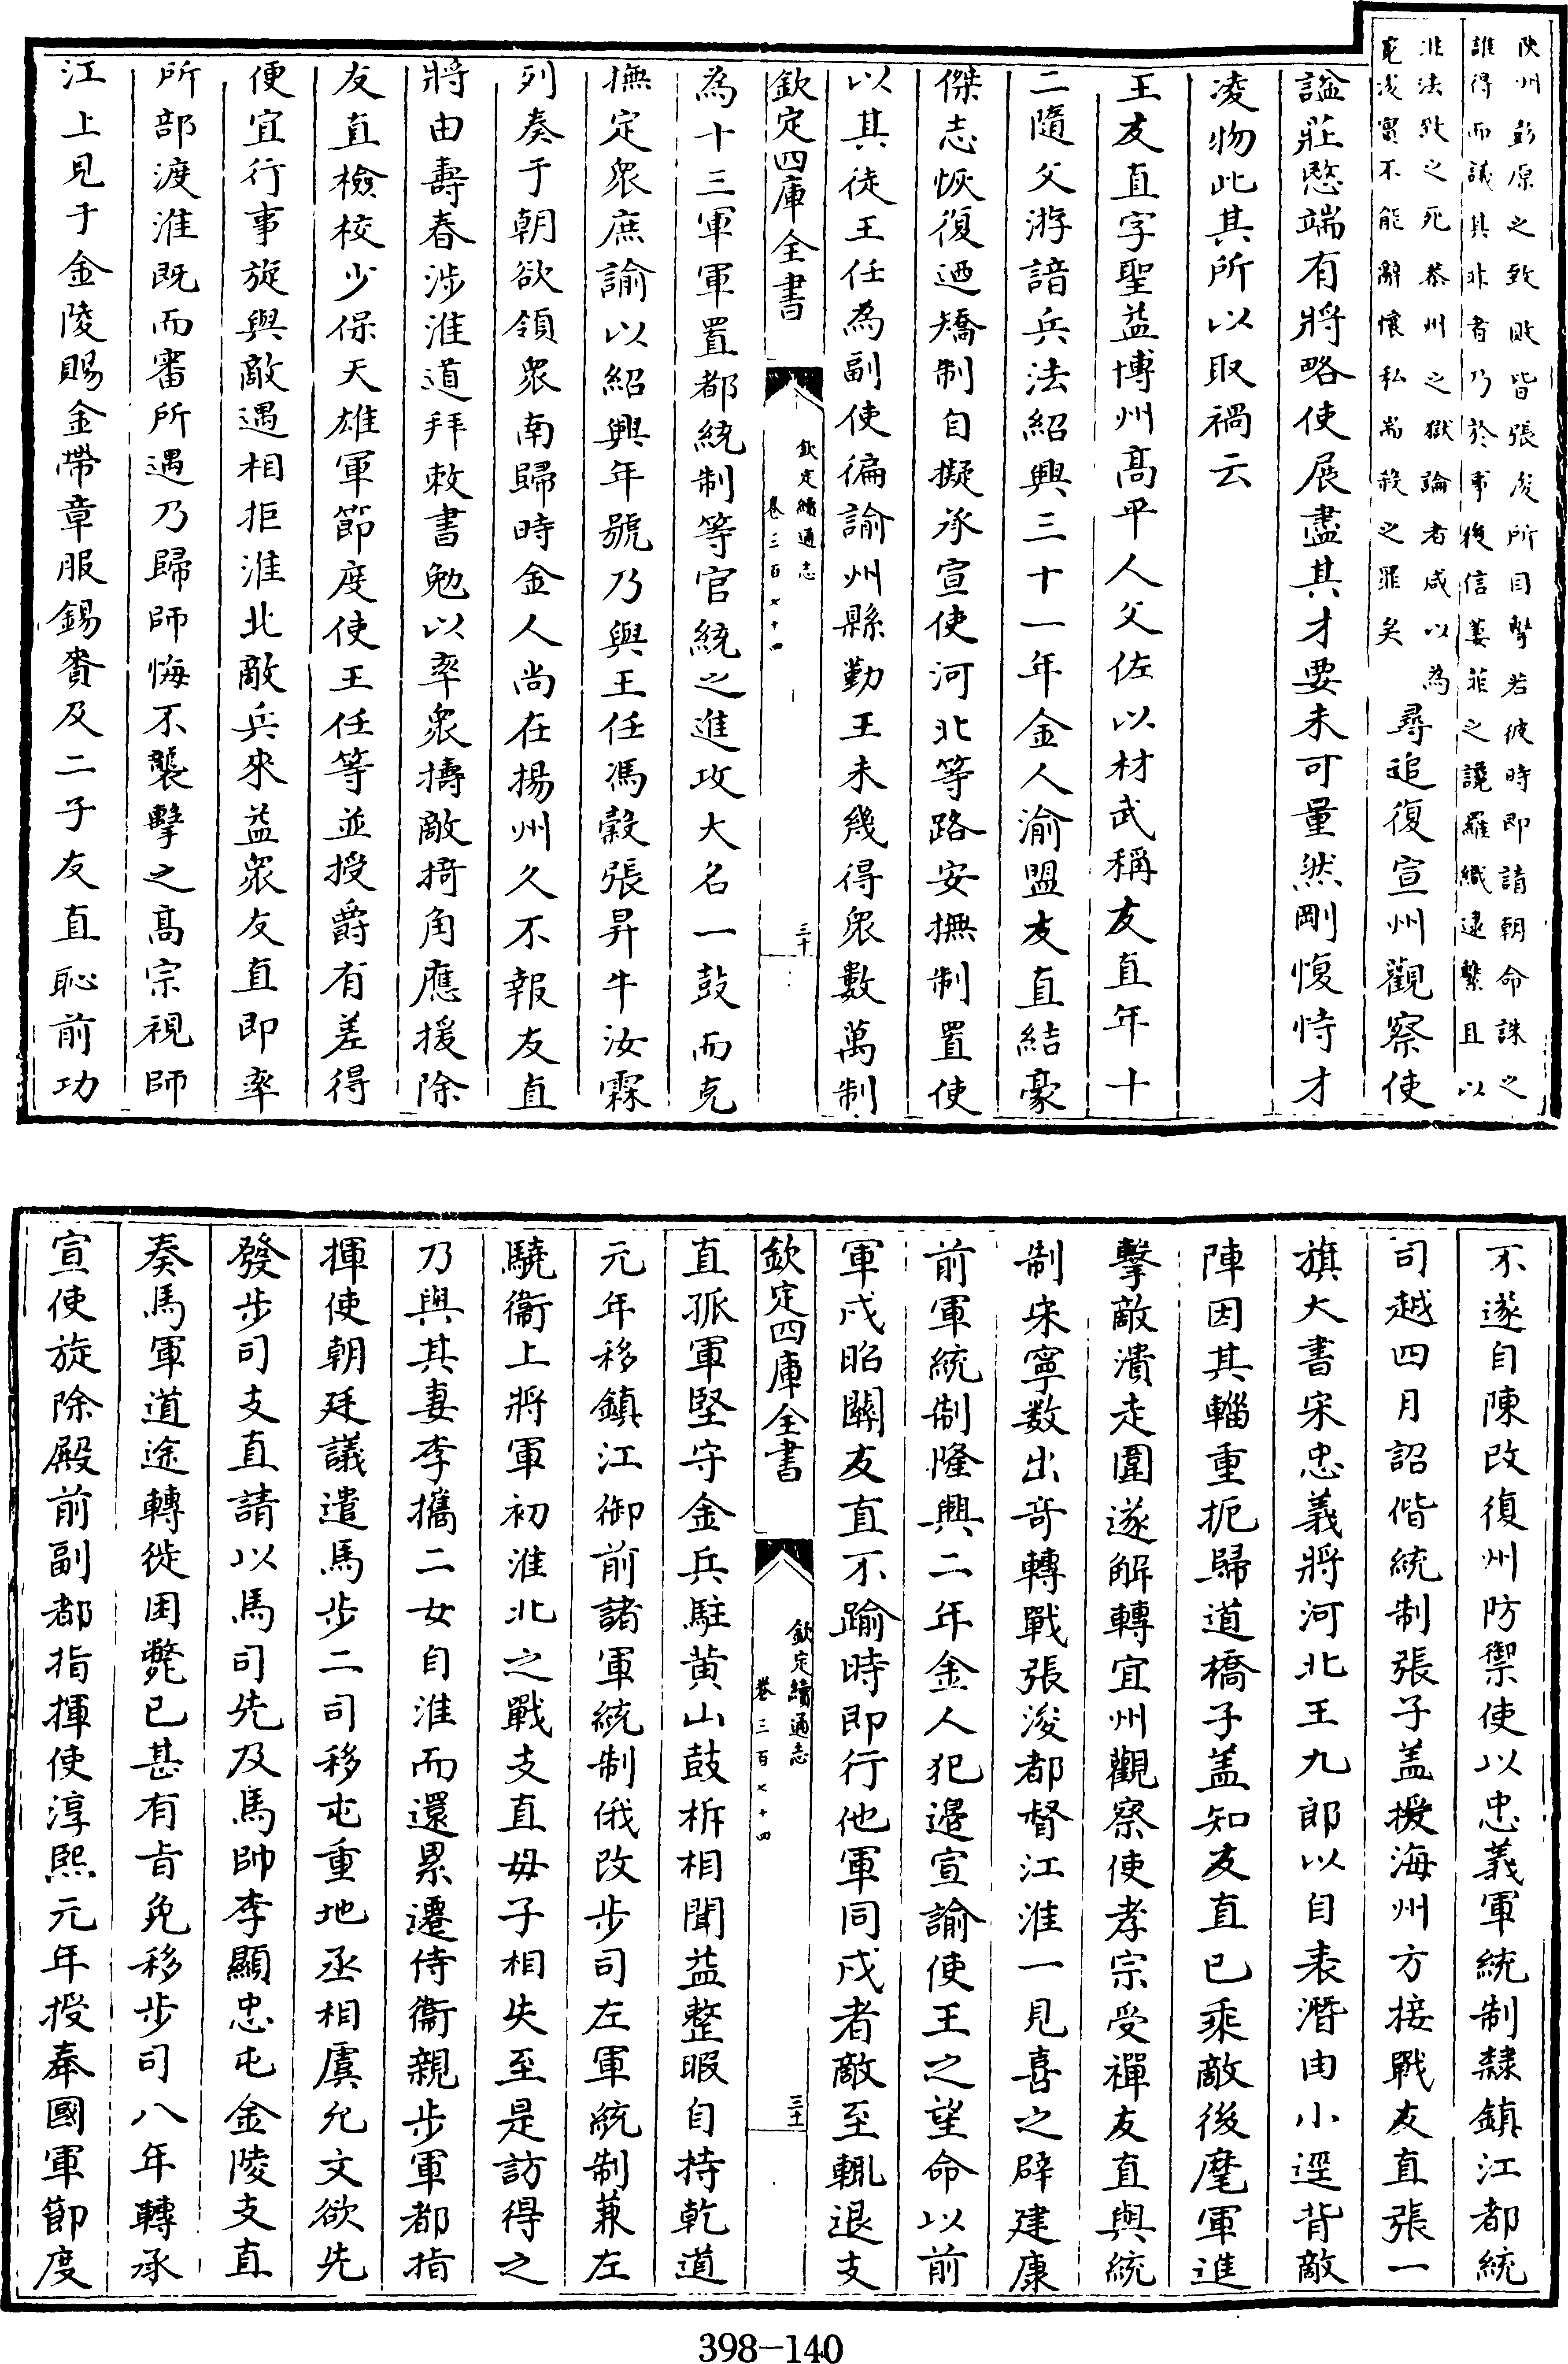 陜州彭原之致敗皆張浚所目擊若彼時即請朝命誅之
誰得而議其非者乃於事後信萋菲之讒羅織逮繫且以
非法致之死恭州之獄論者咸以為
寃浚實不能辭懷私尚殺之罪矣
尋追復宣州觀察使
諡莊愍端有將略使展盡其才要未可量然剛愎恃才
凌物此其所以取禍云
王友直字聖益博州髙平人父佐以材武稱友直年十
二隨父游諳兵法紹興三十一年金人渝盟友直結豪
傑志恢復迺矯制自擬承宣使河北等路安撫制置使
以其徒王任為副使徧諭州縣勤王未幾得衆數萬制
欽定四庫全書
欽定續通志
卷三百七十四
三十
為十三軍軍置都統制等官統之進攻大名一鼓而克
撫定衆庶諭以紹興年號乃與王任馮糓張昇牛汝霖
列奏于朝欲領衆南歸時金人尚在揚州久不報友直
將由壽春涉淮道拜敕書勉以率衆擣敵掎角應援除
友直檢校少保天雄軍節度使王任等並授爵有差得
便宜行事旋與敵遇相拒淮北敵兵來益衆友直即率
所部渡淮既而審所遇乃歸師悔不襲擊之髙宗視師
江上見于金陵賜金帶章服錫賚及二子友直恥前功
不遂自陳改復州防禦使以忠義軍統制隸鎮江都統
司越四月詔偕統制張子盖援海州方接戰友直張一
旗大書宋忠義將河北王九郎以自表潛由小逕背敵
陣因其輜重扼歸道橋子盖知友直已乘敵後麾軍進
擊敵潰走圍遂解轉宜州觀察使孝宗受禪友直與統
制宋寧数出竒轉戰張浚都督江淮一見喜之辟建康
前軍統制隆興二年金人犯邊宣諭使王之望命以前
軍戍昭關友直不踰時即行他軍同戍者敵至輒退支
欽定四庫全書
欽定續通志
卷三百七十四
三十一
直孤軍堅守金兵駐黄山鼓柝相聞益整暇自持乾道
元年移鎮江御前諸軍統制俄改步司左軍統制兼左
驍衞上將軍初淮北之戰支直毋子相失至是訪得之
乃與其妻李攜二女自淮而還累遷侍衞親步軍都指
揮使朝廷議遣馬步二司移屯重地丞相虞允文欲先
發步司支直請以馬司先及馬帥李顯忠屯金陵支直
奏馬軍道途轉徙困斃已甚有㫖免移步司八年轉承
宣使旋除殿前副都指揮使淳熙元年授奉國軍節度
398-140